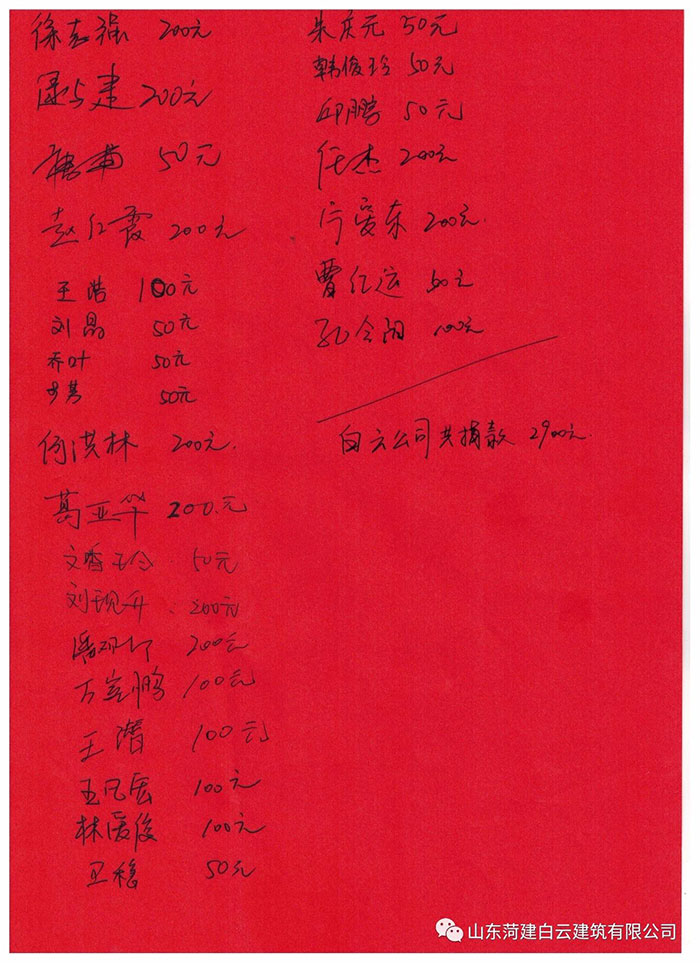 徐志强 200元
200元
50元
赵红霞 200元
王浩 100元
刘晶 50元
乔叶 50元
步芳 50元
何洪林 200元.
葛亚华 200.元
文香玲 50元
刘现升 200元
200元
万宝鹏 100元
王潜 100元
王凡宏 100元
林爱俊 100元
卫稳 50元
朱庆元 50元
韩俊玲 50元
邱鹏 50元
任杰 200元
宁爱东 200元.
曹仁运 50元
孔令阔 100元
白云公司共捐款 2900元.
山东菏建白云建筑有限公司